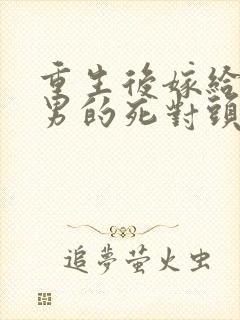 重生後嫁給
男的死對頭
追夢萤火虫